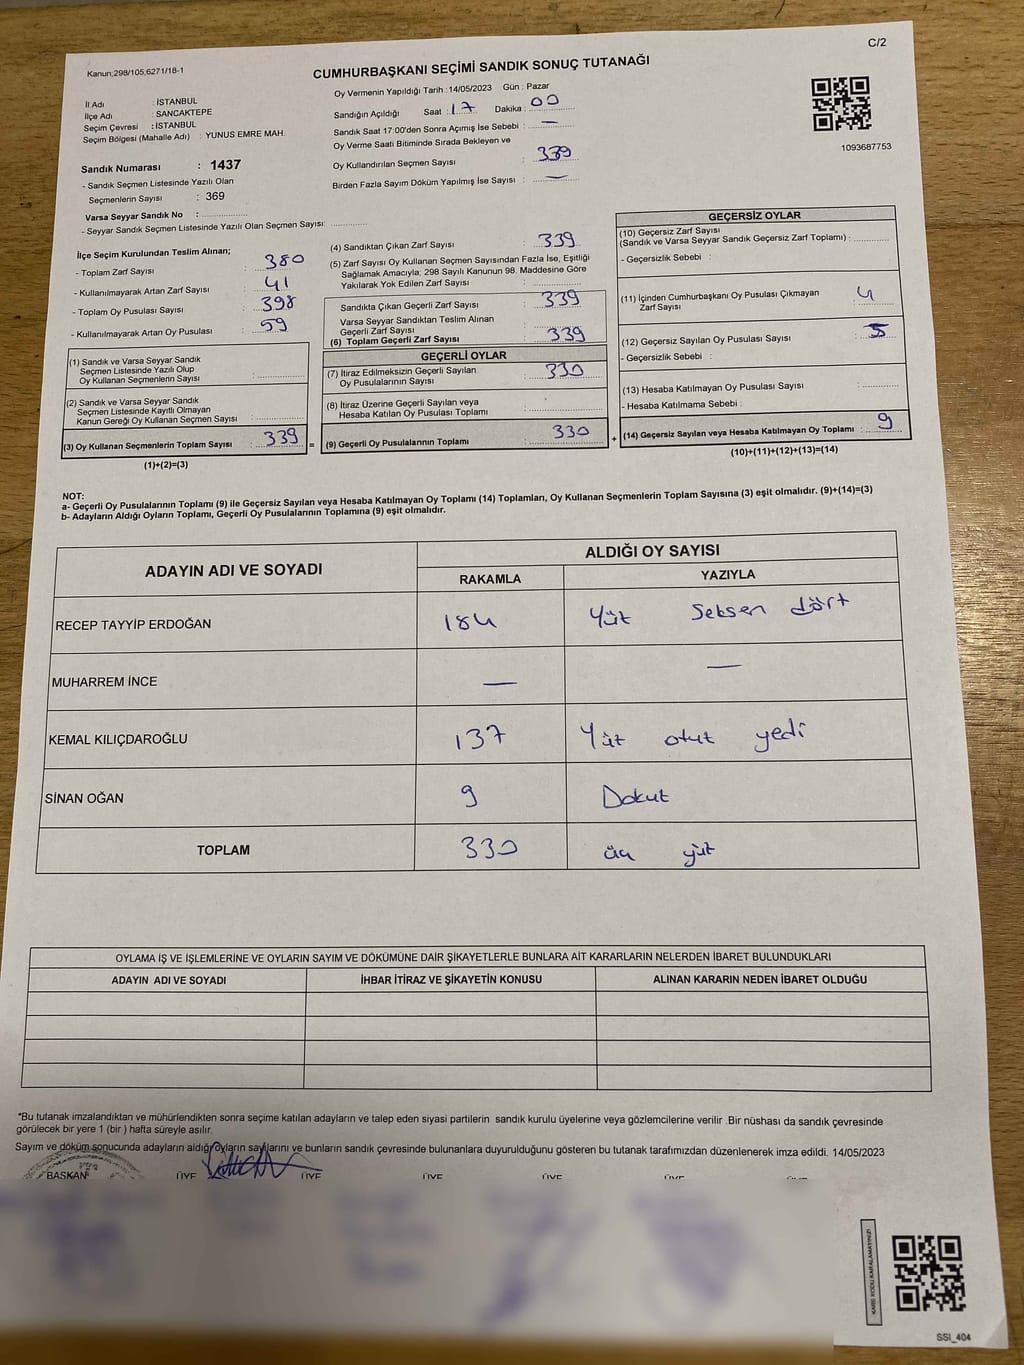 C/2
Kanun;298/105;6271/18-1
CUMHURBAŞKANI SEÇİMİ SANDIK SONUÇ TUTANAĞI
Oy Vermenin Yapıldığı Tarih : 14/05/2023 Gün : Pazar
İl Adı : İSTANBUL
İlçe Adı : SANCAKTEPE
Seçim Çevresi : İSTANBUL
Seçim Bölgesi (Mahalle Adı) : YUNUS EMRE MAH.
Sandığın Açıldığı Saat : 17 Dakika : 00
Sandık Saat 17:00'den Sonra Açımış İse Sebebi : —
Oy Verme Saati Bitiminde Sırada Bekleyen ve
Oy Kullandırılan Seçmen Sayısı : 339
Birden Fazla Sayım Döküm Yapılmış İse Sayısı : —
1093687753
Sandık Numarası : 1437
- Sandık Seçmen Listesinde Yazılı Olan
Seçmenlerin Sayısı : 369
Varsa Seyyar Sandık No :
- Seyyar Sandık Seçmen Listesinde Yazılı Olan Seçmen Sayısı:
İlçe Seçim Kurulundan Teslim Alınan;
- Toplam Zarf Sayısı : 380
- Kullanılmayarak Artan Zarf Sayısı : 41
- Toplam Oy Pusulası Sayısı : 398
- Kullanılmayarak Artan Oy Pusulası : 59
(1) Sandık ve Varsa Seyyar Sandık
Seçmen Listesinde Yazılı Olup
Oy Kullanan Seçmenlerin Sayısı :
(2) Sandık ve Varsa Seyyar Sandık
Seçmen Listesinde Kayıtlı Olmayan
Kanun Gereği Oy Kullanan Seçmen Sayısı :
(3) Oy Kullanan Seçmenlerin Toplam Sayısı : 339 =
(1)+(2)=(3)
(4) Sandıktan Çıkan Zarf Sayısı : 339
(5) Zarf Sayısı Oy Kullanan Seçmen Sayısından Fazla İse, Eşitliği
Sağlamak Amacıyla; 298 Sayılı Kanunun 98. Maddesine Göre
Yakılarak Yok Edilen Zarf Sayısı :
Sandıkta Çıkan Geçerli Zarf Sayısı : 339
Varsa Seyyar Sandıktan Teslim Alınan
Geçerli Zarf Sayısı :
(6) Toplam Geçerli Zarf Sayısı : 339
GEÇERLİ OYLAR
(7) İtiraz Edilmeksizin Geçerli Sayılan
Oy Pusulalarının Sayısı : 330
(8) İtiraz Üzerine Geçerli Sayılan veya
Hesaba Katılan Oy Pusulası Toplamı :
(9) Geçerli Oy Pusulalarının Toplamı : 330 +
GEÇERSİZ OYLAR
(10) Geçersiz Zarf Sayısı
(Sandık ve Varsa Seyyar Sandık Geçersiz Zarf Toplamı) :
- Geçersizlik Sebebi :
(11) İçinden Cumhurbaşkanı Oy Pusulası Çıkmayan
Zarf Sayısı : 4
(12) Geçersiz Sayılan Oy Pusulası Sayısı : 5
- Geçersizlik Sebebi :
(13) Hesaba Katılmayan Oy Pusulası Sayısı :
- Hesaba Katılmama Sebebi :
(14) Geçersiz Sayılan veya Hesaba Katılmayan Oy Toplamı : 9
(10)+(11)+(12)+(13)=(14)
NOT:
a- Geçerli Oy Pusulalarının Toplamı (9) ile Geçersiz Sayılan veya Hesaba Katılmayan Oy Toplamı (14) Toplamları, Oy Kullanan Seçmenlerin Toplam Sayısına (3) eşit olmalıdır. (9)+(14)=(3)
b- Adayların Aldığı Oyların Toplamı, Geçerli Oy Pusulalarının Toplamına (9) eşit olmalıdır.
ADAYIN ADI VE SOYADI ALDIĞI OY SAYISI
RAKAMLA YAZIYLA
RECEP TAYYİP ERDOĞAN 184 Yüz Seksen dört
MUHARREM İNCE — —
KEMAL KILIÇDAROĞLU 137 Yüz otuz yedi
SİNAN OĞAN 9 Dokuz
TOPLAM 330 üç yüz
OYLAMA İŞ VE İŞLEMLERİNE VE OYLARIN SAYIM VE DÖKÜMÜNE DAİR ŞİKAYETLERLE BUNLARA AİT KARARLARIN NELERDEN İBARET BULUNDUKLARI
ADAYIN ADI VE SOYADI İHBAR İTİRAZ VE ŞİKAYETİN KONUSU ALINAN KARARIN NEDEN İBARET OLDUĞU
*Bu tutanak imzalandıktan ve mühürlendikten sonra seçime katılan adayların ve talep eden siyasi partilerin sandık kurulu üyelerine veya gözlemcilerine verilir. Bir nüshası da sandık çevresinde
görülecek bir yere 1 (bir) hafta süreyle asılır.
Sayım ve döküm sonucunda adayların aldığı oyların sayılarını ve bunların sandık çevresinde bulunanlara duyurulduğunu gösteren bu tutanak tarafımızdan düzenlenerek imza edildi. 14/05/2023
BAŞKAN ÜYE ÜYE ÜYE ÜYE ÜYE ÜYE
KARE KODU KARALAMAYINIZ!
SSI_404